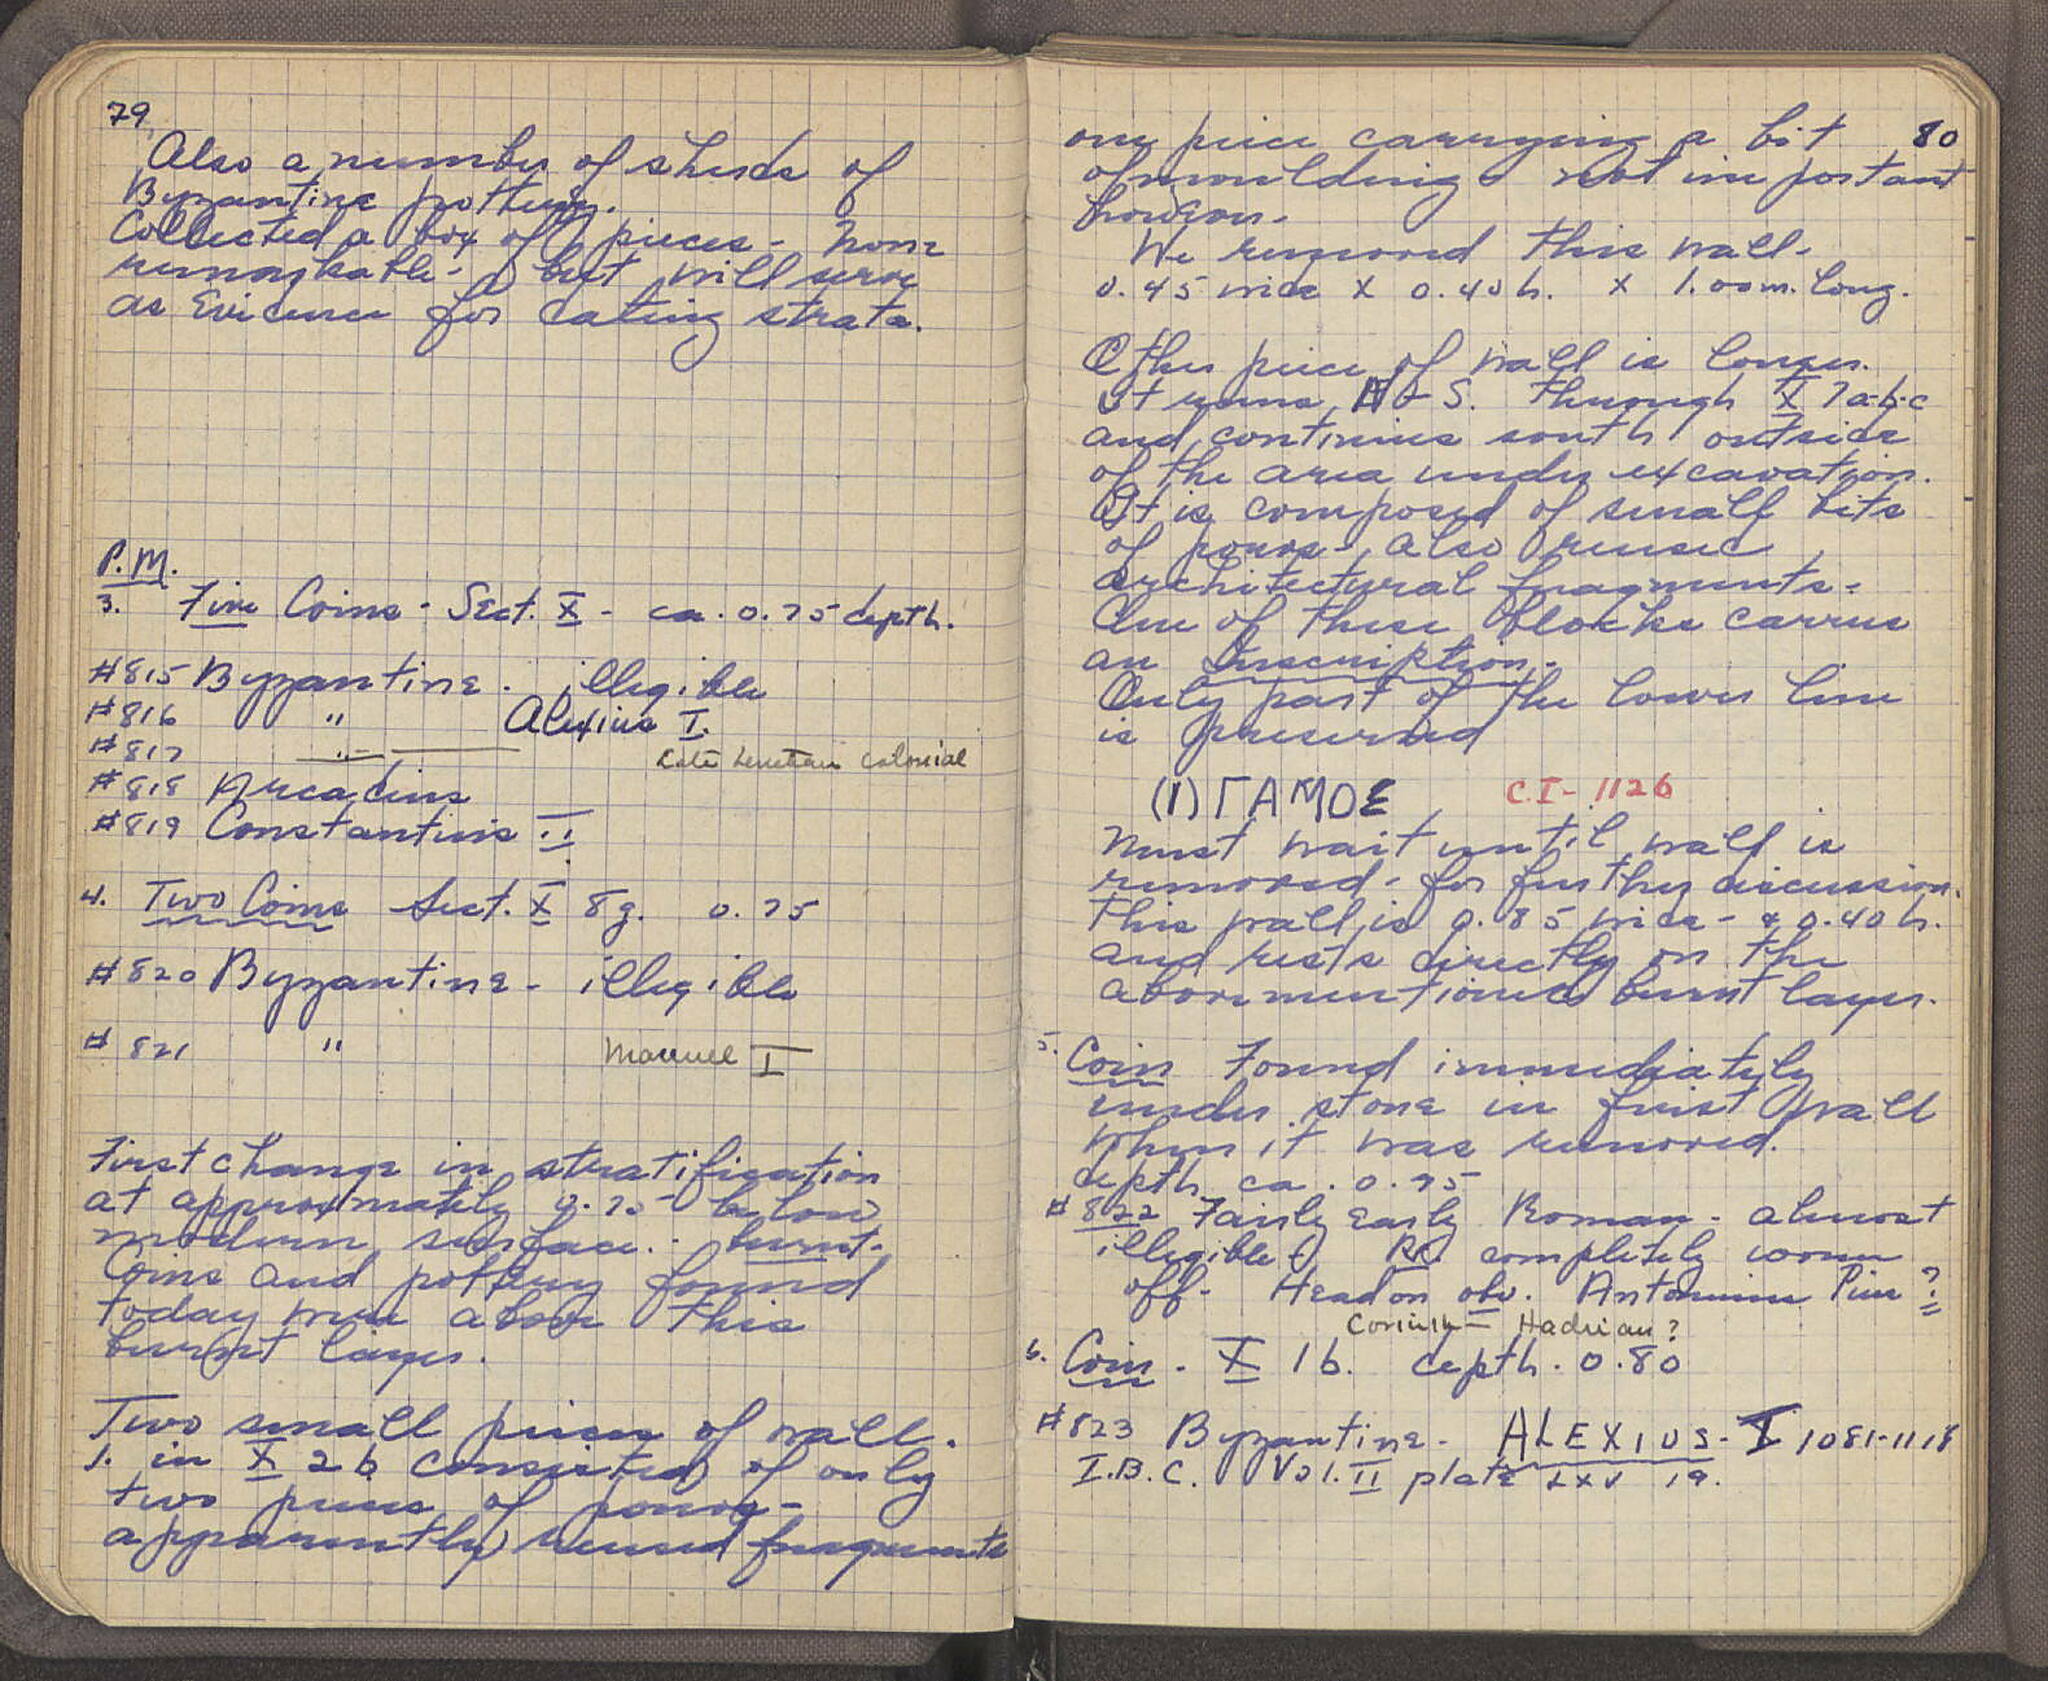 79
Also a number of sherds of
Byzantine pottery.
Collected a box of pieces - none
remarkable - but will serve
as Evidence for dating strata.
P.M.
3. Five Coins - Sect. X - ca. 0.75 depth.
#815 Byzantine. illegible
#816 " Alexius I.
#817 " Late Venetian colonial
#818 Arcadius
#819 Constantius II
4. Two Coins Sect. X 8g. 0.75
#820 Byzantine - illegible
#821 " Manuel I
First change in stratification
at approximately 0.75 below
modern surface. - burnt.
Coins and pottery found
today were above this
burnt layer.
Two small pieces of wall.
1. in X 2b consisted of only
two pieces of poros -
apparently reused fragments
80
one piece carrying a bit
of moulding - not important
however.
We removed this wall.
0.45 wide x 0.40 h. x 1.00 m. long.
Other piece of wall is longer.
It runs N-S. through X 7a-b-c
and continues south outside
of the area under excavation.
It is composed of small bits
of poros - also reused
architectural fragments.
One of these blocks carries
an Inscription.
Only part of the lower line
is preserved
(Ι)ΓΑΜΟΕ C.I- 1126
Must wait until wall is
removed - for further discussion.
This wall is 0.85 wide - & 0.40 h.
and rests directly on the
abovementioned burnt layer.
5. Coin Found immediately
under stone in first wall
when it was removed.
depth ca. 0.95
#822 Fairly Early Roman - almost
illegible. Rv. completely worn
off - Head on obv. Antoninus Pius?
Corinth - Hadrian?
6. Coin. X 1b. depth. 0.80
#823 Byzantine - ALEXIUS - I 1081-1118
I.B.C. Vol. II plate LXV 19.